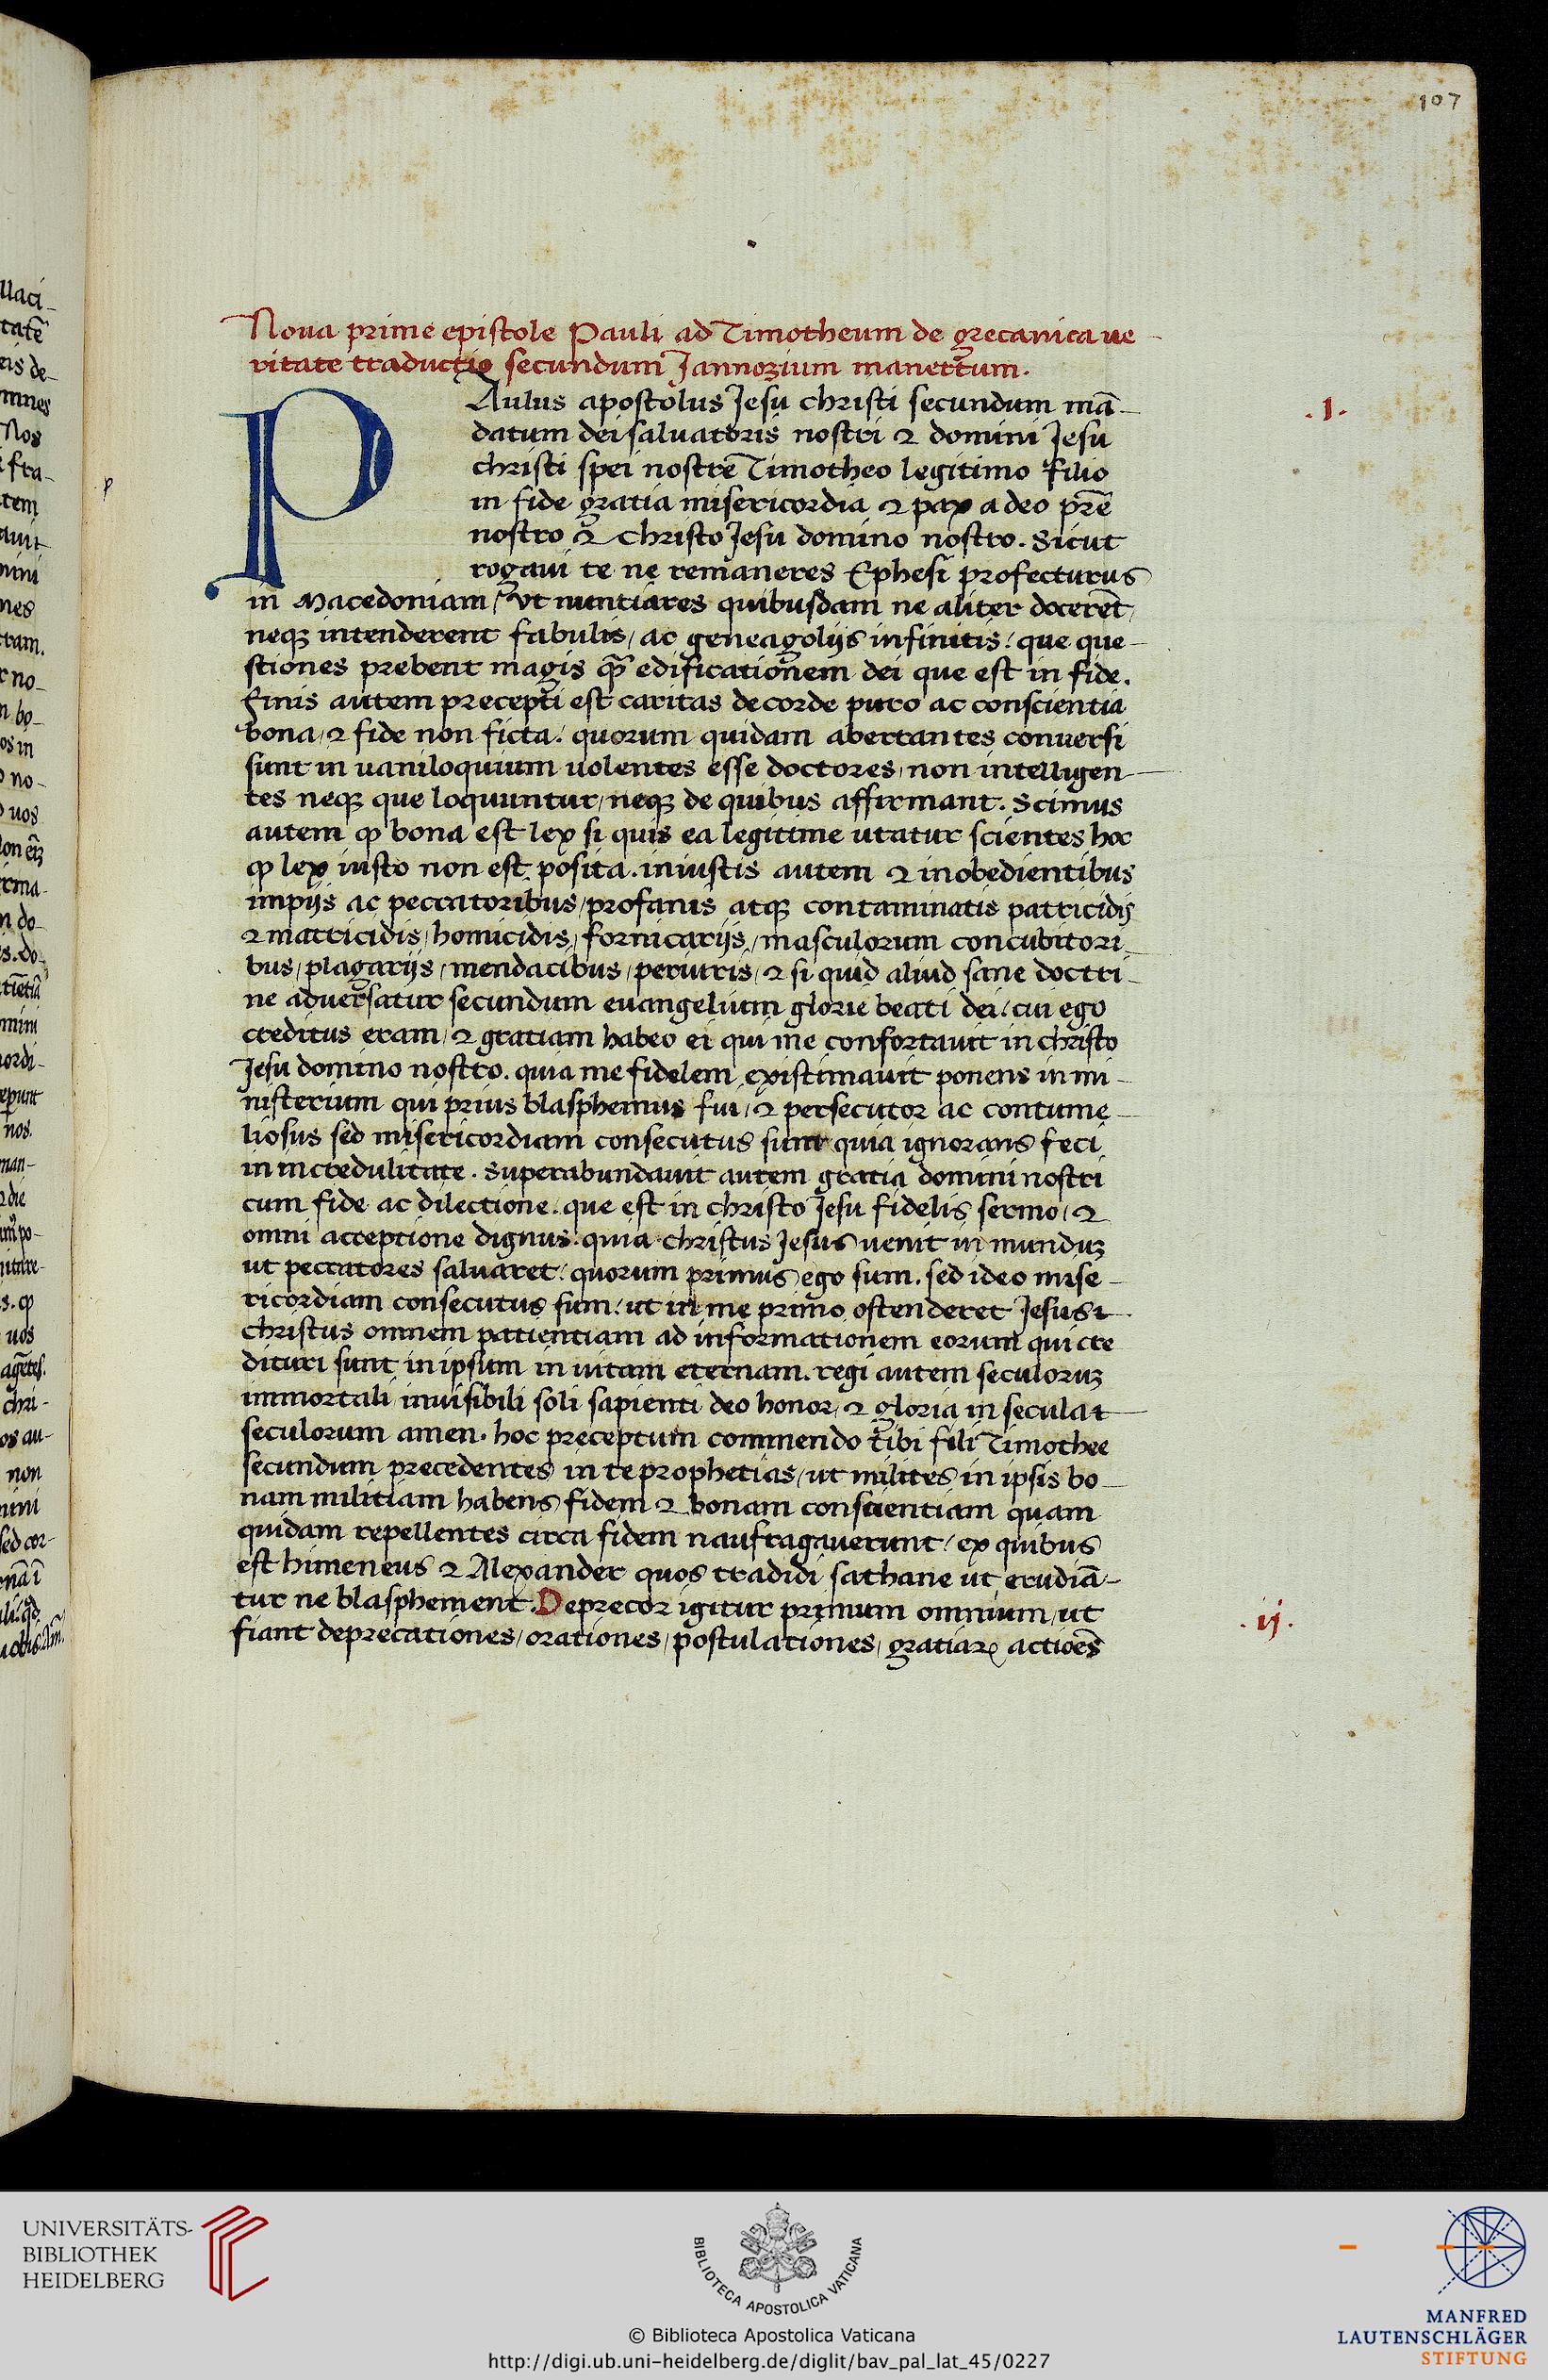 107
Noua prime epistole Pauli ad Timotheum de grecanica ue
ritate traductio secundum Jannozium manettum.
PAulus apostolus Jesu christi secundum mā
.1.
datum dei saluatoris nostri ⁊ domini Jesu
christi spei nostre Timotheo legitimo filio
in fide gratia misericordia ⁊ pax a deo pr̄e
nostro ⁊ christo Jesu domino nostro. Sicut
rogaui te ne remaneres Ephesi profecturus
in Macedoniam / vt nuntiares quibusdam ne aliter docerēt /
neqꝫ intenderent fabulis / ac geneagolijs infinitis / que que
stiones prebent magis quā edificationem dei que est in fide.
finis autem precepti est caritas de corde puro ac conscientia
bona / ⁊ fide non ficta / quorum quidam aberrantes conuersi
sunt in uaniloquium uolentes esse doctores / non intelligen
tes neqꝫ que loquuntur / neqꝫ de quibus affirmant. Scimus
autem ꝙ bona est lex si quis ea legitime utatur scientes hoc
ꝙ lex iusto non est posita. iniustis autem ⁊ inobedientibus
impijs ac peccatoribus / profanis atqꝫ contaminatis patricidijs
⁊ matricidis / homicidis / fornicarijs / masculorum concubitori
bus / plagarijs / mendacibus / periuris / ⁊ si quid aliud sane doctri
ne aduersatur secundum euangelium glorie beati dei / cui ego
creditus eram / ⁊ gratiam habeo ei qui me confortauit in christo
Jesu domino nostro. quia me fidelem existimauit ponens in mi
nisterium qui prius blasphemus fui / ⁊ persecutor ac contume
liosus sed misericordiam consecutus sum quia ignorans feci
in incredulitate. Superabundauit autem gratia domini nostri
cum fide ac dilectione. que est in christo Jesu fidelis sermo / ⁊
omni acceptione dignus. quia christus Jesus uenit in munduꝫ
ut peccatores saluaret / quorum primus ego sum. sed ideo mise
ricordiam consecutus sum / ut in me primo ostenderet Jesus
christus omnem patientiam ad informationem eorum qui cre
dituri sunt in ipsum in uitam eternam. regi autem seculoruꝫ
immortali inuisibili soli sapienti deo honor / ⁊ gloria in secula
seculorum amen. hoc preceptum commendo tibi fili Timothee
secundum precedentes in te prophetias / ut milites in ipsis bo
nam militiam habens fidem ⁊ bonam conscientiam quam
quidam repellentes circa fidem naufragauerunt / ex quibus
est himeneus ⁊ Alexander quos tradidi sathane ut erudiā
tur ne blasphement. Deprecor igitur primum omnium / ut
.ij.
fiant deprecationes / orationes / postulationes / gratiaꝝ actiōes
UNIVERSITÄTS-
BIBLIOTHEK
HEIDELBERG
BIBLIOTECA APOSTOLICA VATICANA
© Biblioteca Apostolica Vaticana
http://digi.ub.uni-heidelberg.de/diglit/bav_pal_lat_45/0227
MANFRED
LAUTENSCHLÄGER
STIFTUNG